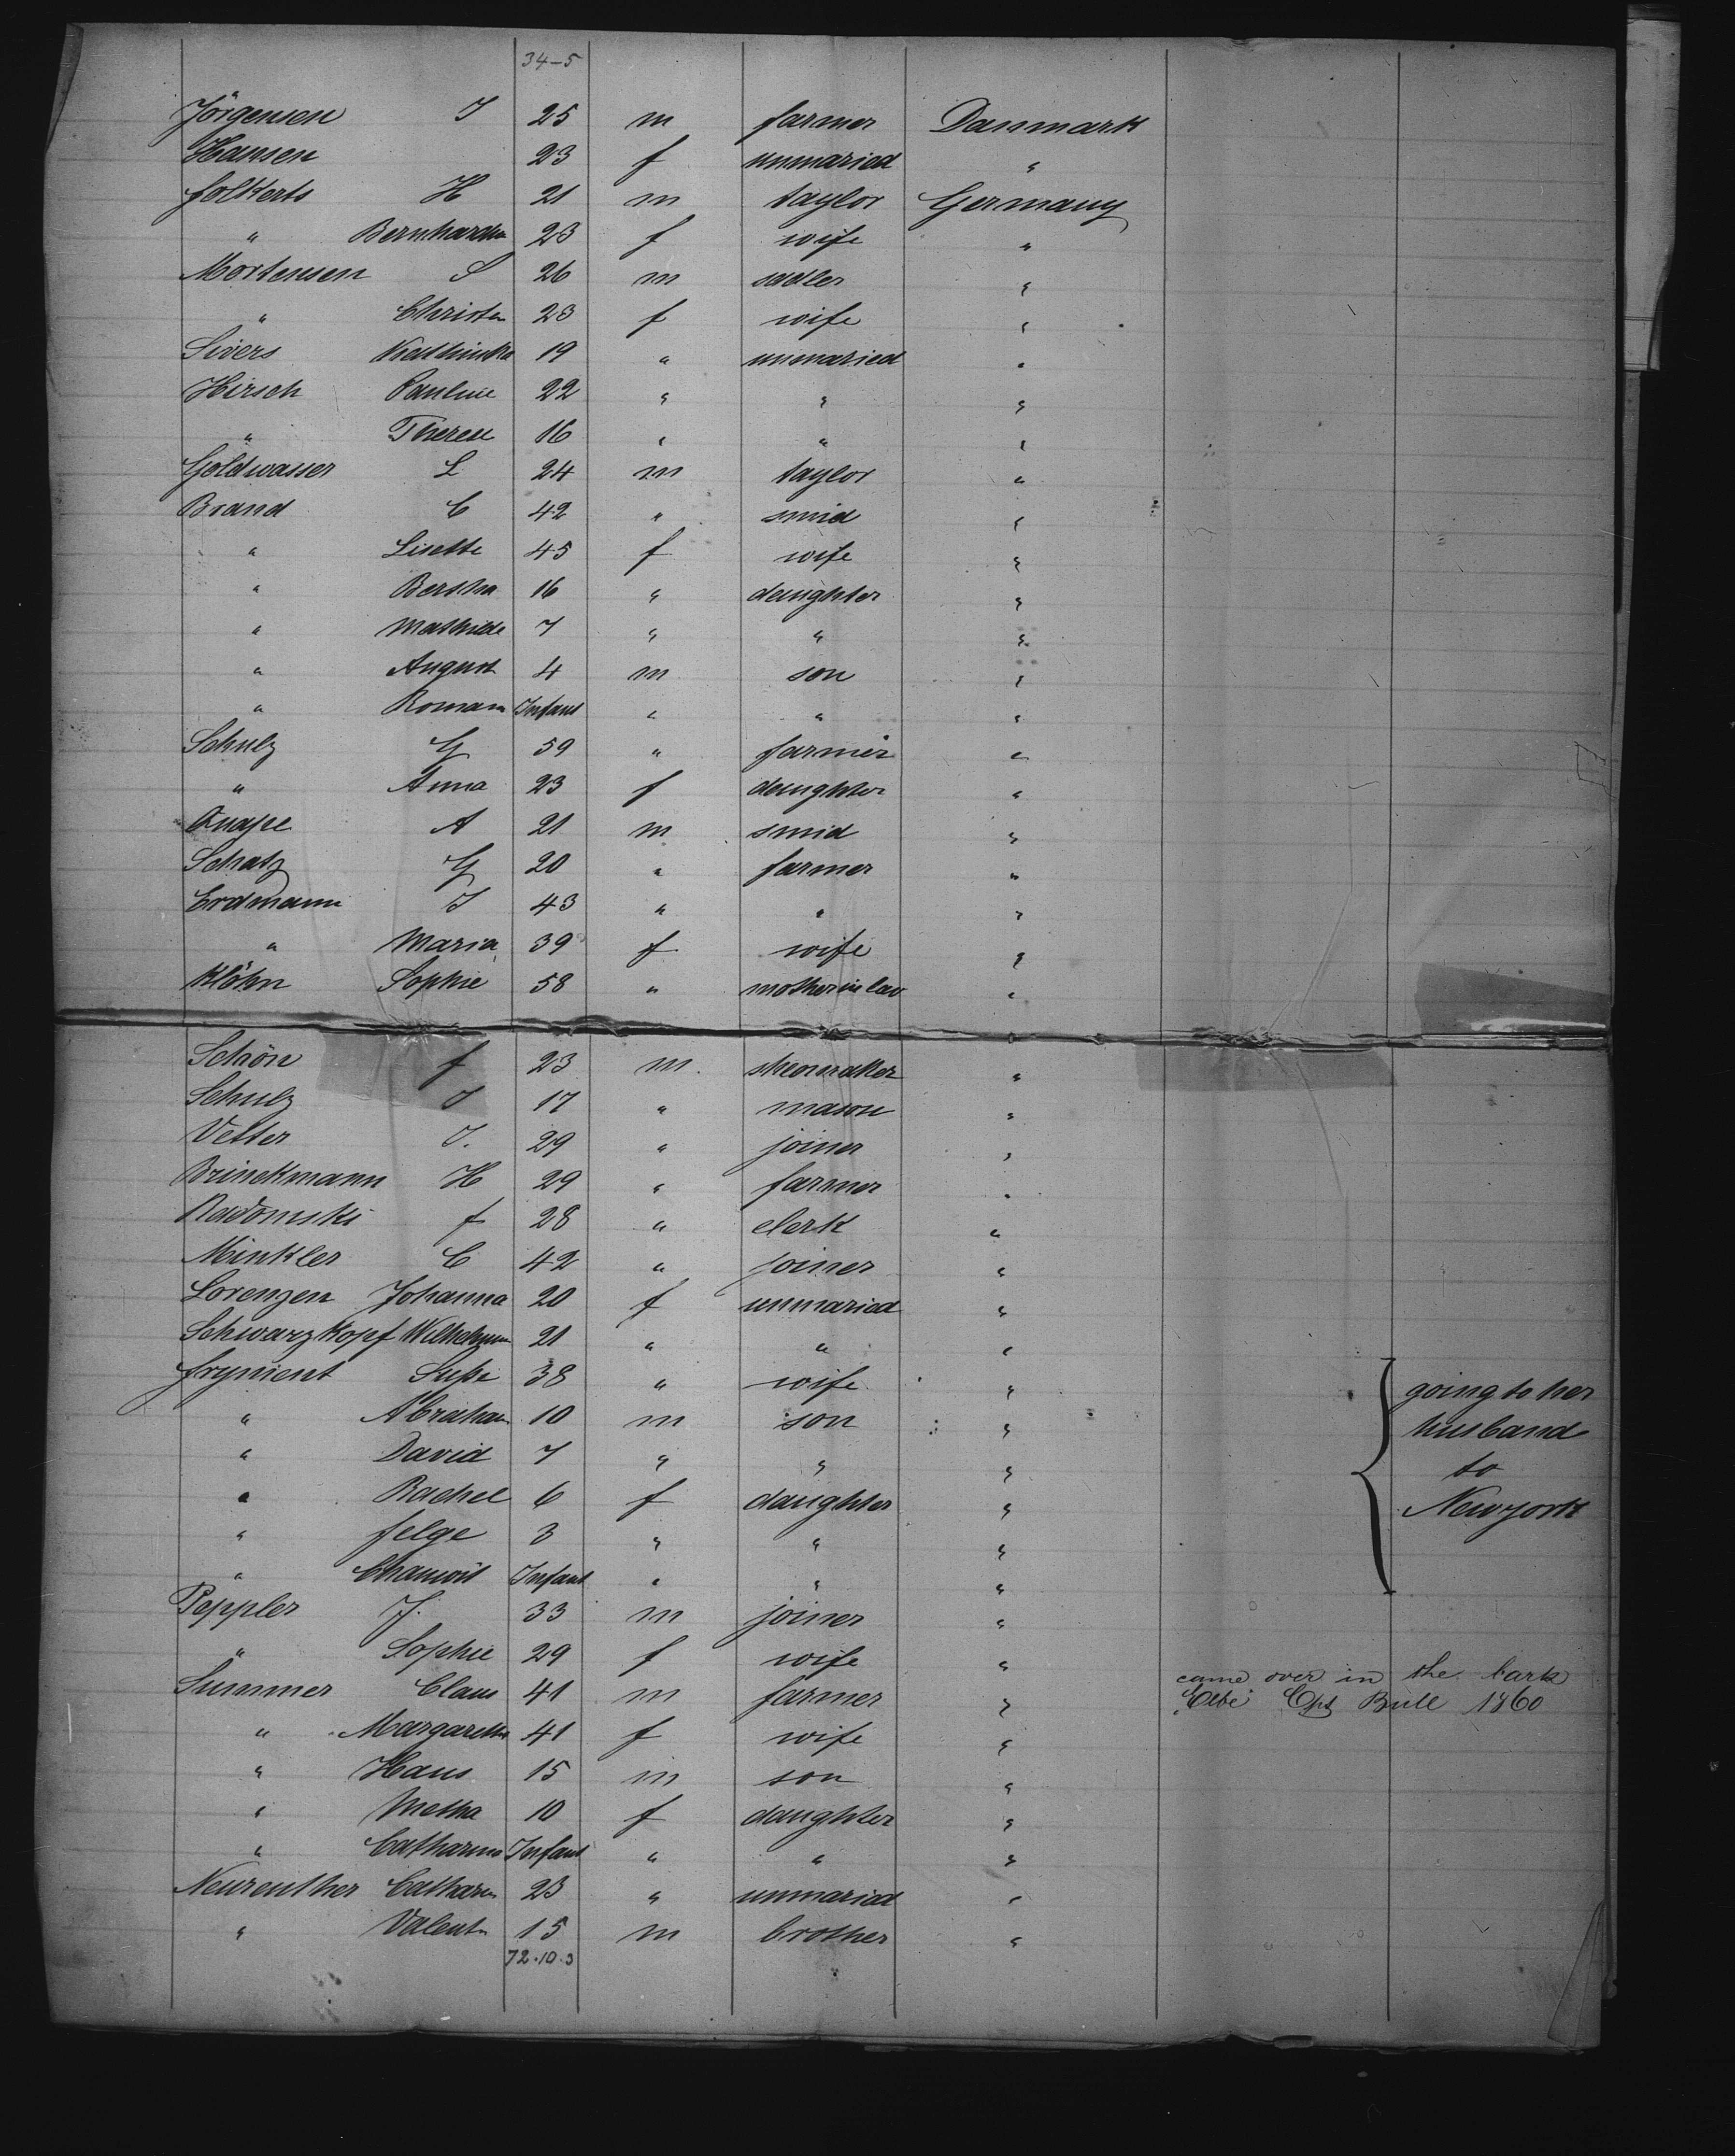 34-5
Jörgensen J 25 m farmer Danmark
Hansen 23 f unmaried "
Folkerts H 21 m taylor Germany
" Bernhardin 23 f wife "
Mortensen S 26 m sadler "
" Christin 23 f wife "
Sivers Kathinka 19 " unmaried "
Hirsch Pauline 22 " " "
" Therese 16 " " "
Goldwasser L 24 m taylor "
Brand C 42 " smid "
" Lisette 45 f wife "
" Bertha 16 " daughter "
" Mathilde 7 " " "
" August 4 m son "
" Roman Infant " " "
Schulz G 59 " farmer "
" Anna 23 f daughter "
A 21 m smid "
Schatz G 20 " farmer "
Erdmann J 43 " " "
" Maria 39 f wife "
Klöhn Sophie 58 " mother in law "
Schön F 23 m sheomaker "
Schulz J 17 " mason "
Vetter J. 29 " joiner "
Brinckmann H 29 " farmer "
Radomski F 28 " clerk "
Minkler C 42 " joiner "
Lorenzen Johanna 20 f unmaried "
Schwarzkopf Wilhelmin 21 " " "
38 " wife " going to her
" Abraham 10 m son " husband
" David 7 " " " to
" Rachel 6 f daughter " Newyork
" Felge 3 " " "
" Infant " " "
Peppler J. 33 m joiner "
" Sophie 29 f wife "
Summer Claus 41 m farmer " came over in the bark
"Elbe" Cpt Bull 1860
" Margaretha 41 f wife "
" Hans 15 m son "
" Metha 10 f daughter "
" Catharina Infant " " "
Neurenther Catharin 23 " unmaried "
" Valentin 15 m brother "
72.10.3